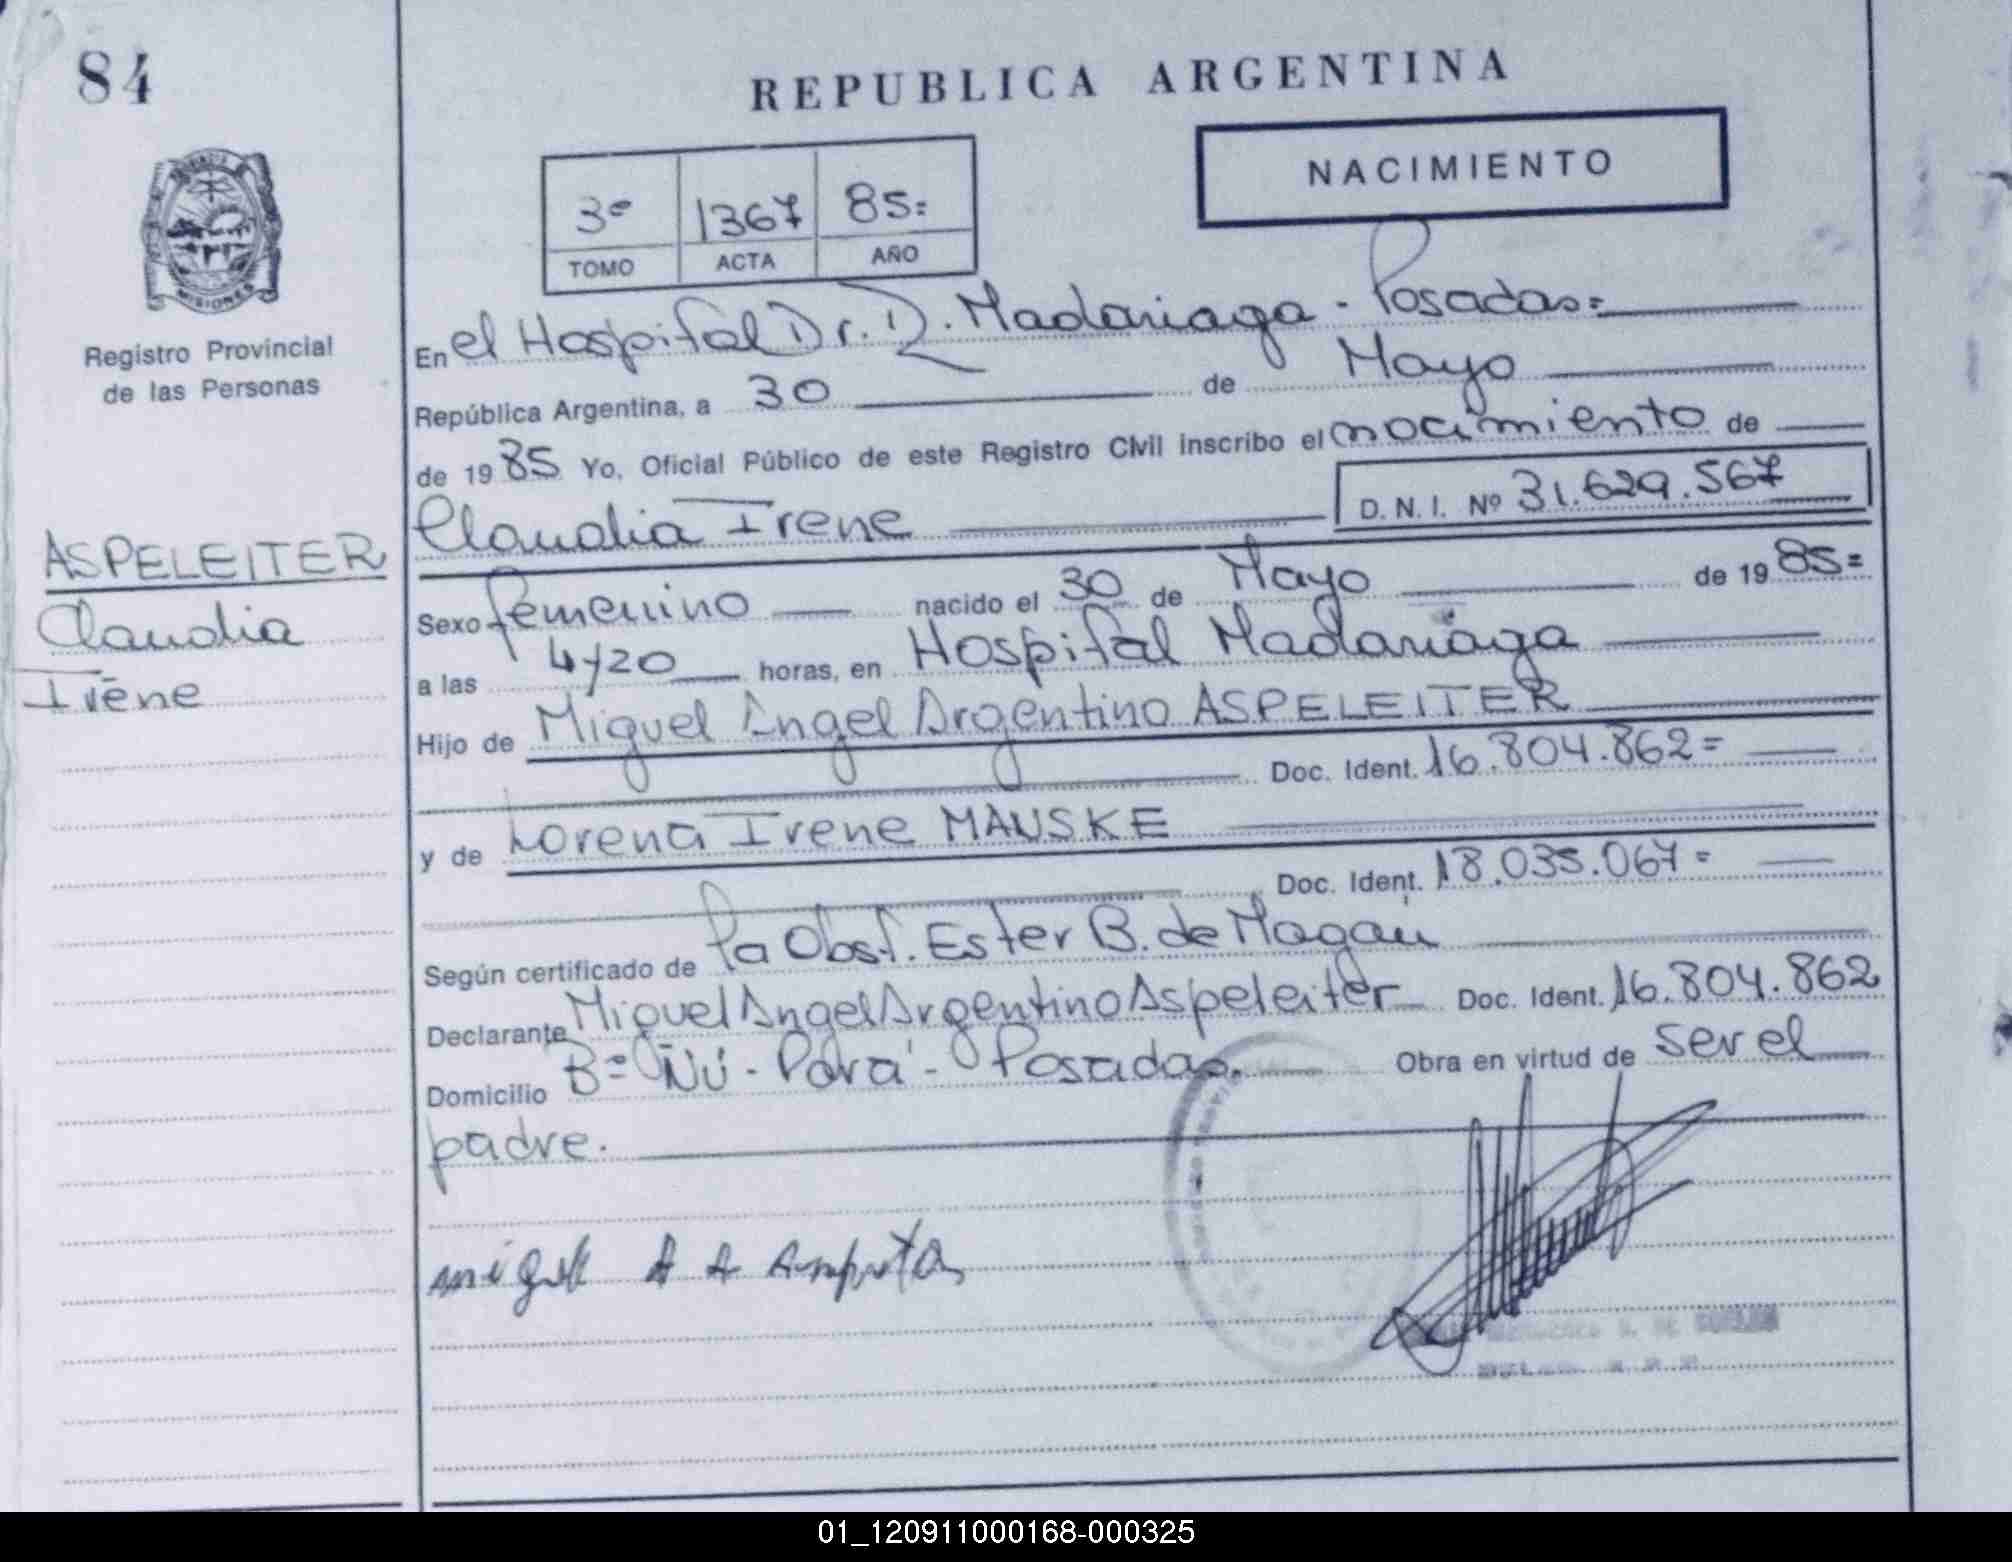 84
REPUBLICA ARGENTINA
NACIMIENTO
3º 1367 85=
TOMO ACTA AÑO
MISIONES
Registro Provincial
de las Personas
ASPELEITER
Claudia
Irene
En el Hospital Dr. R. Madariaga - Posadas=
República Argentina, a 30 de Mayo
de 1985 Yo, Oficial Público de este Registro Civil inscribo el nacimiento de
Claudia Irene D.N.I. Nº 31.629.567
Sexo femenino nacido el 30 de Mayo de 1985=
a las 4y20 horas, en Hospital Madariaga
Hijo de Miguel Angel Argentino ASPELEITER
Doc. Ident. 16.804.862=
y de Lorena Irene MAUSKE
Doc. Ident. 18.035.067=
Según certificado de la Obst. Ester B. de Magan
Declarante Miguel Angel Argentino Aspeleiter Doc. Ident. 16.804.862
Domicilio Bº Ñú-Porá - Posadas. Obra en virtud de ser el
padre.
miguel A A
01_120911000168-000325